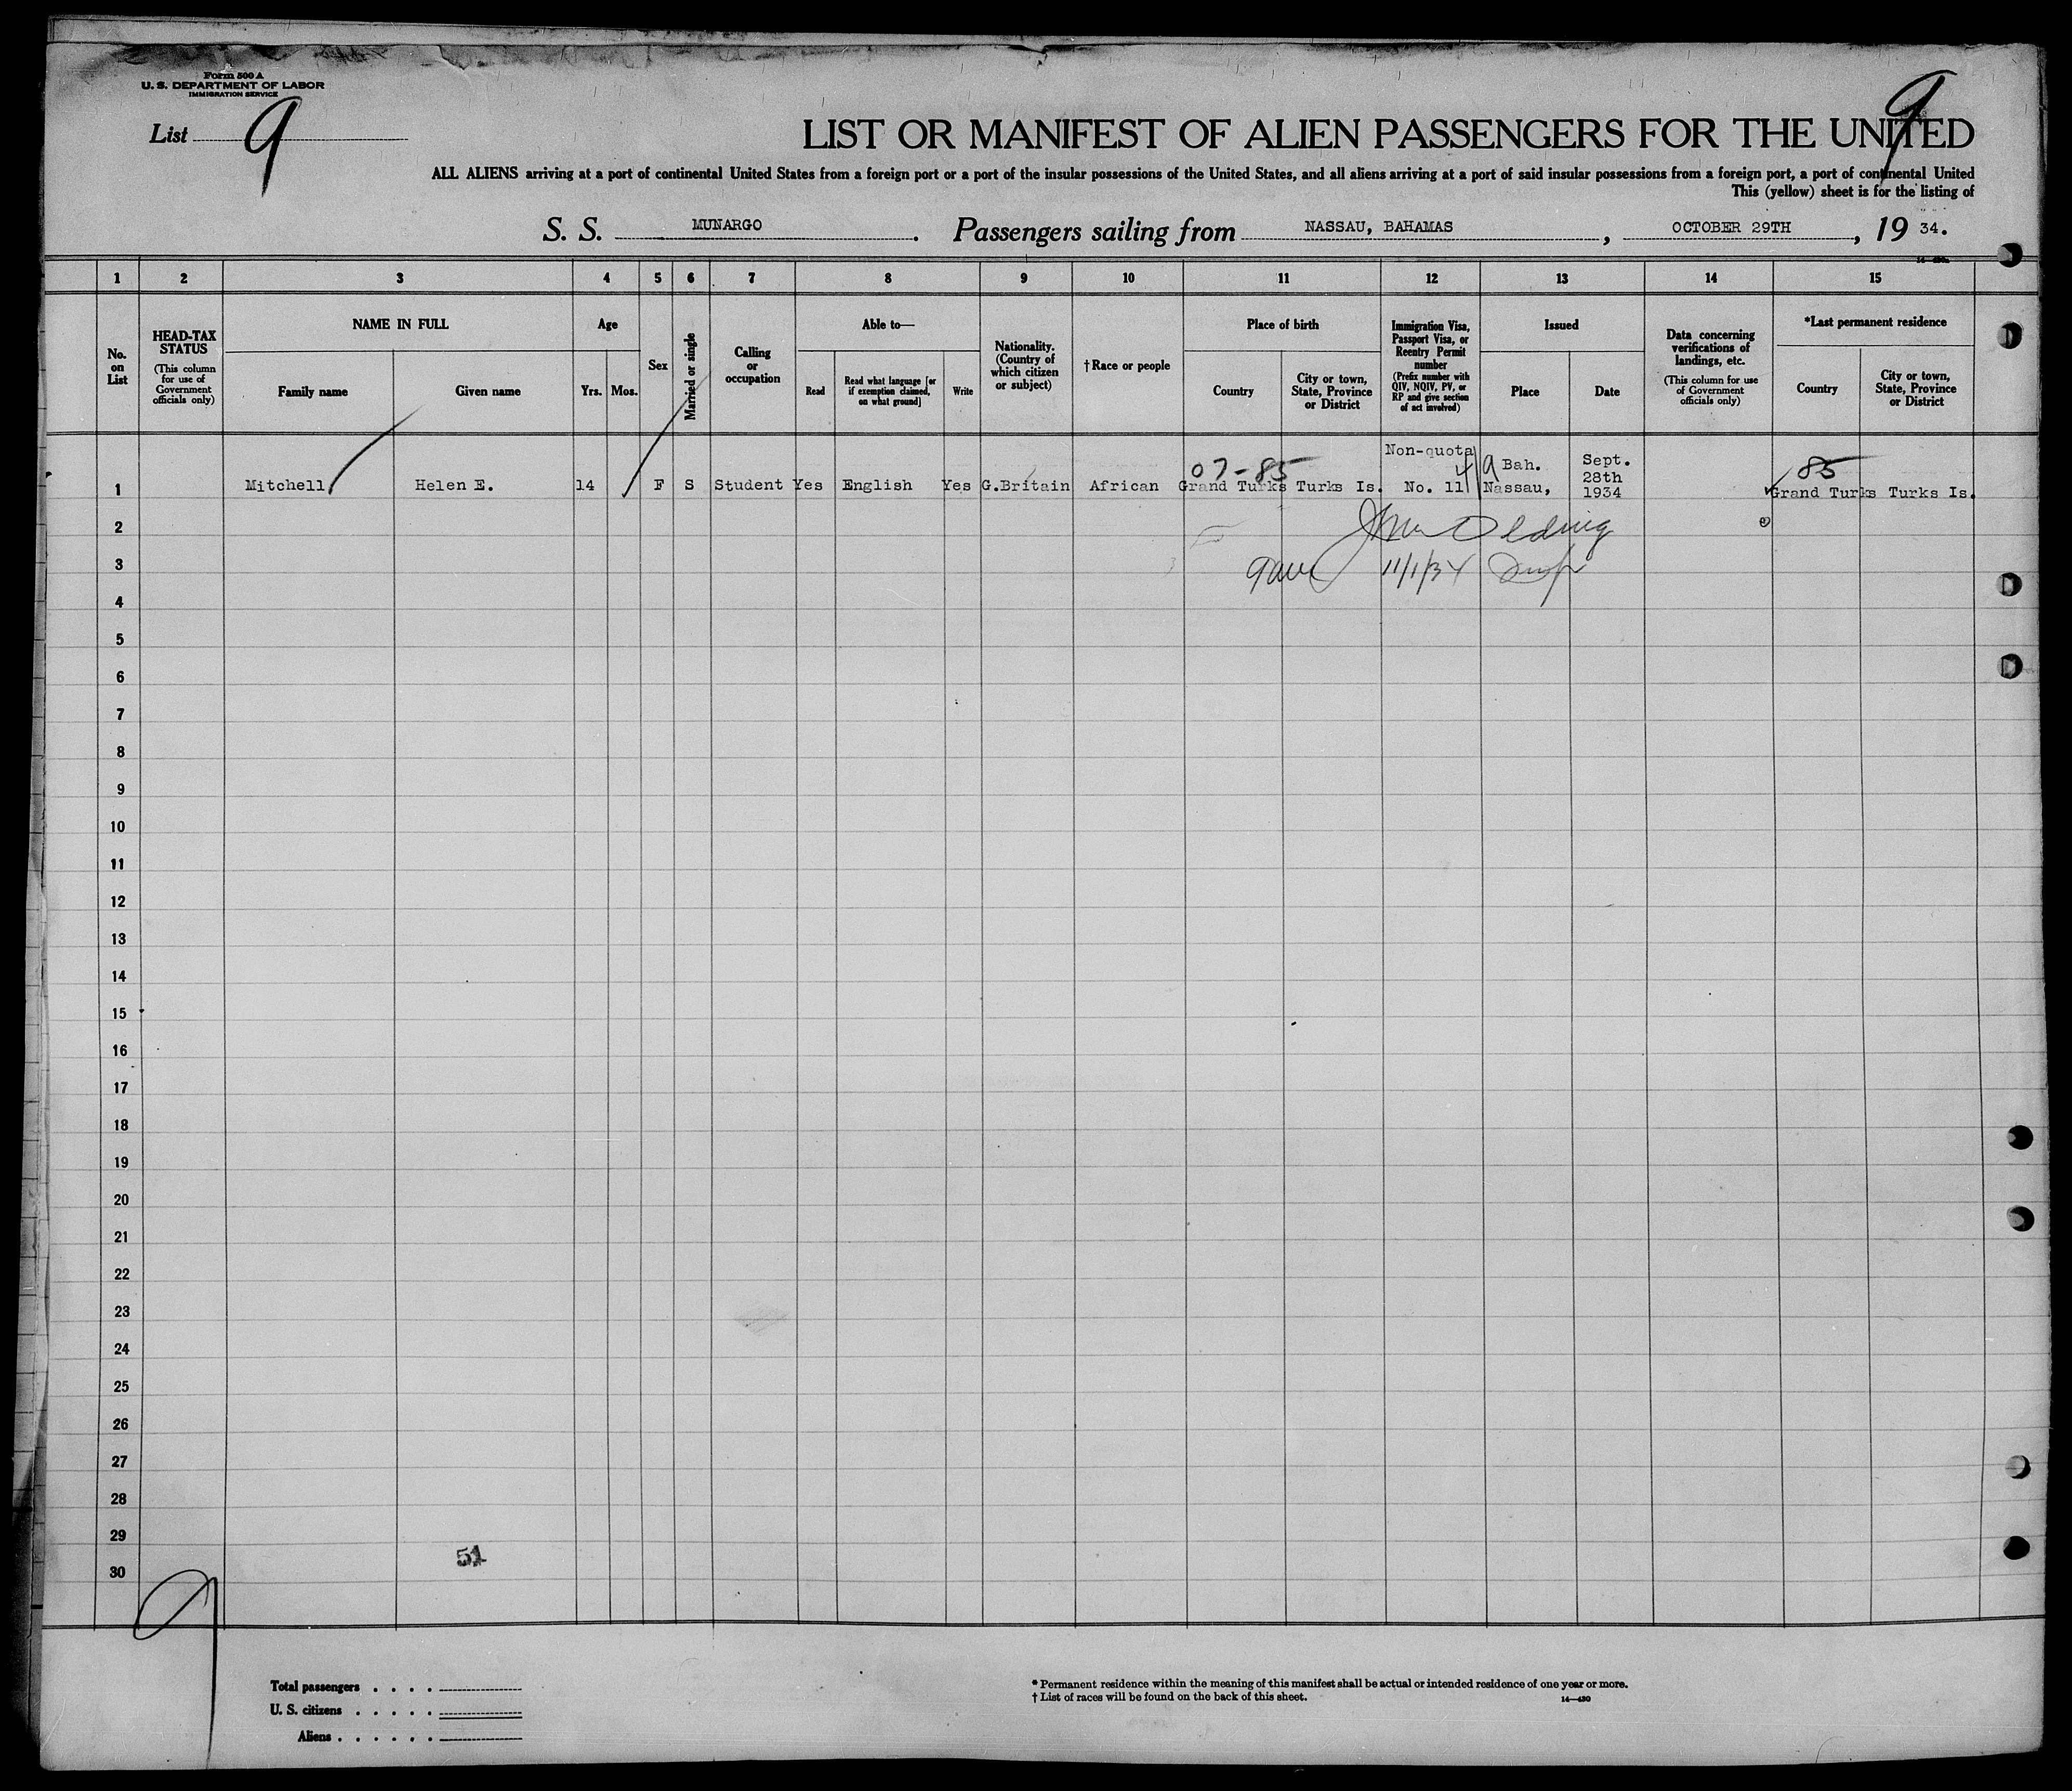 Form 500 A
U. S. DEPARTMENT OF LABOR
IMMIGRATION SERVICE
List 9
9
LIST OR MANIFEST OF ALIEN PASSENGERS FOR THE UNITED
ALL ALIENS arriving at a port of continental United States from a foreign port or a port of the insular possessions of the United States, and all aliens arriving at a port of said insular possessions from a foreign port, a port of continental United
This (yellow) sheet is for the listing of
S. S. MUNARGO. Passengers sailing from NASSAU, BAHAMAS, OCTOBER 29TH, 19 34.
1 2 3 4 5 6 7 8 9 10 11 12 13 14 15
No. on List
HEAD-TAX STATUS
(This column for use of Government officials only)
NAME IN FULL
Family name
Given name
Age
Yrs. Mos.
Sex
Married or single
Calling or occupation
Able to—
Read
Read what language [or if exemption claimed, on what ground]
Write
Nationality. (Country of which citizen or subject)
†Race or people
Place of birth
Country
City or town, State, Province or District
Immigration Visa, Passport Visa, or Reentry Permit number
(Prefix number with QIV, NQIV, PV, or RP and give section of act involved)
Issued
Place
Date
Data concerning verifications of landings, etc.
(This column for use of Government officials only)
*Last permanent residence
Country
City or town, State, Province or District
07-85
Non-quota
4 a
Bah.
Sept.
28th
85
1 Mitchell Helen E. 14 F S Student Yes English Yes G.Britain African Grand Turks Turks Is. No. 11 Nassau, 1934 Grand Turks Turks Is.
2
3 11/1/34
4
5
6
7
8
9
10
11
12
13
14
15
16
17
18
19
20
21
22
23
24
25
26
27
28
29
51
30
9
Total passengers . . . .
U. S. citizens . . . . .
Aliens . . . . . .
* Permanent residence within the meaning of this manifest shall be actual or intended residence of one year or more.
† List of races will be found on the back of this sheet. 14—430